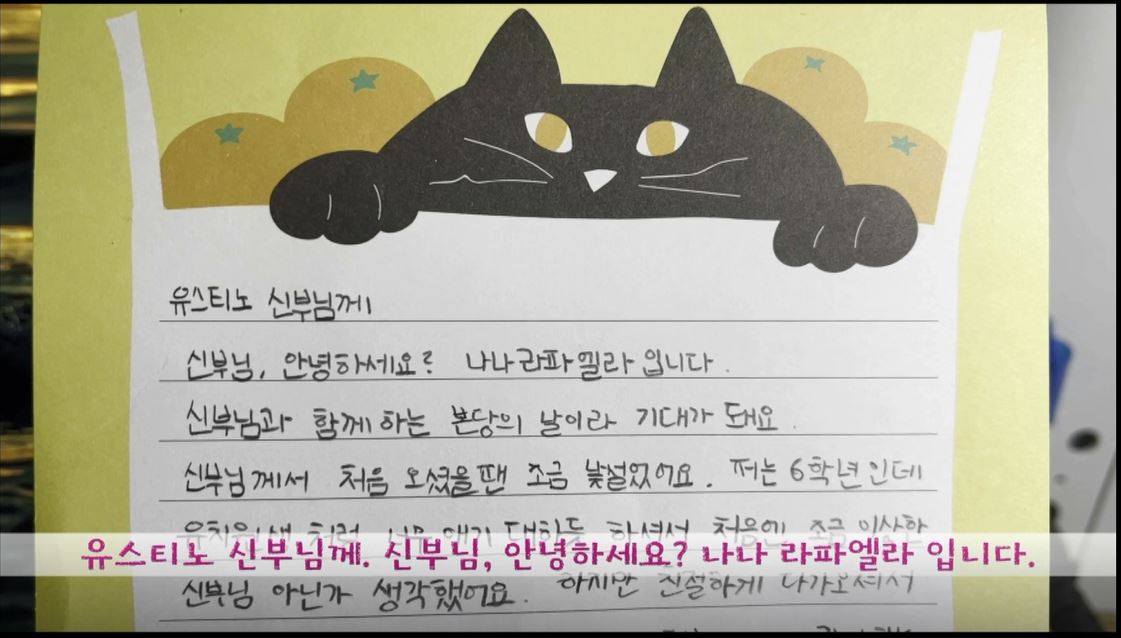 유스티노 신부님께
신부님, 안녕하세요? 나나 라파엘라 입니다.
신부님과 함께 하는 본당의 날이라 기대가 돼요.
신부님께서 처음 오셨을 땐 조금 낯설었어요. 저는 6학년인데
처럼 너무 애기 대하듯 하셔서 처음엔 조금 이상한
유스티노 신부님께. 신부님, 안녕하세요? 나나 라파엘라 입니다.
신부님 아닌가 생각했어요. 하지만 친절하게 다가오셔서